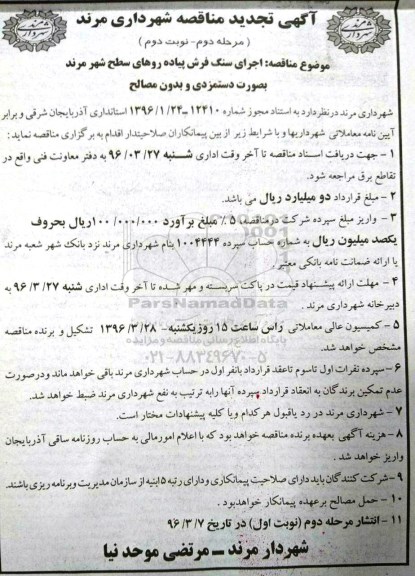 آگهی تجدید مناقصه شهرداری مرند
( مرحله دوم- نوبت دوم )
موضوع مناقصه: اجرای سنگ فرش پیاده روهای سطح شهر مرند
بصورت دستمزدی و بدون مصالح
شهرداری مرند در نظر دارد به استناد مجوز شماره ۱۲۴۱۰ـ ۱۳۹۶/۱/۲۴ استانداری آذربایجان شرقی و برابر
آیین نامه معاملاتی شهرداریها و با شرایط زیر از بین پیمانکاران صلاحیتدار اقدام به برگزاری مناقصه نماید:
۱ - جهت دریافت اسناد مناقصه تا آخر وقت اداری شنبه ۹۶/۰۳/۲۷ به دفتر معاونت فنی واقع در
تقاطع برق مراجعه شود.
۲ - مبلغ قرارداد دو میلیارد ریال می باشد.
۳ - واریز مبلغ سپرده شرکت درمناقصه ۵٪ مبلغ برآورد ۱۰۰/۰۰۰/۰۰۰ریال بحروف
یکصد میلیون ریال به شماره حساب سپرده ۱۰۰۴۴۴۴ بنام شهرداری مرند نزد بانک شهر شعبه مرند
یا ارائه ضمانت نامه بانکی معتبر
۴ - مهلت ارائه پیشنهاد قیمت در پاکت سربسته و مهر شده تا آخر وقت اداری شنبه ۹۶/۳/۲۷ به
دبیرخانه شهرداری مرند .
۵ - کمیسیون عالی معاملاتی راس ساعت ۱۵ روز یکشنبه - ۱۳۹۶/۳/۲۸ تشکیل و برنده مناقصه
مشخص خواهد شد.
۶ -سپرده نفرات اول تاسوم تاعقد قرارداد بانفر اول در حساب شهرداری مرند باقی خواهد ماند ودرصورت
عدم تمکین برندگان به انعقاد قرارداد سپرده آنها رابه ترتیب به نفع شهرداری مرند ضبط خواهد شد.
۷ - شهرداری مرند در رد یاقبول هرکدام ویا کلیه پیشنهادات مختار است.
۸ - هزینه آگهی بعهده برنده مناقصه خواهد بود که با اعلام امورمالی به حساب روزنامه ساقی آذربایجان
واریز خواهد شد .
۹ -شرکت کنندگان باید دارای صلاحیت پیمانکاری ودارای رتبه ۵ ابنیه از سازمان مدیریت وبرنامه ریزی باشند.
۱۰ - حمل مصالح برعهده پیمانکار خواهدبود .
۱۱ - انتشار مرحله دوم (نوبت اول) در تاریخ ۹۶/۳/۷
شهردار مرند ــ مرتضی موحد نیا
ParsNamadData
پایگاه اطلاع رسانی مناقصه و مزایده
۰۲۱-۸۸۳۴۹۶۷۰-۵